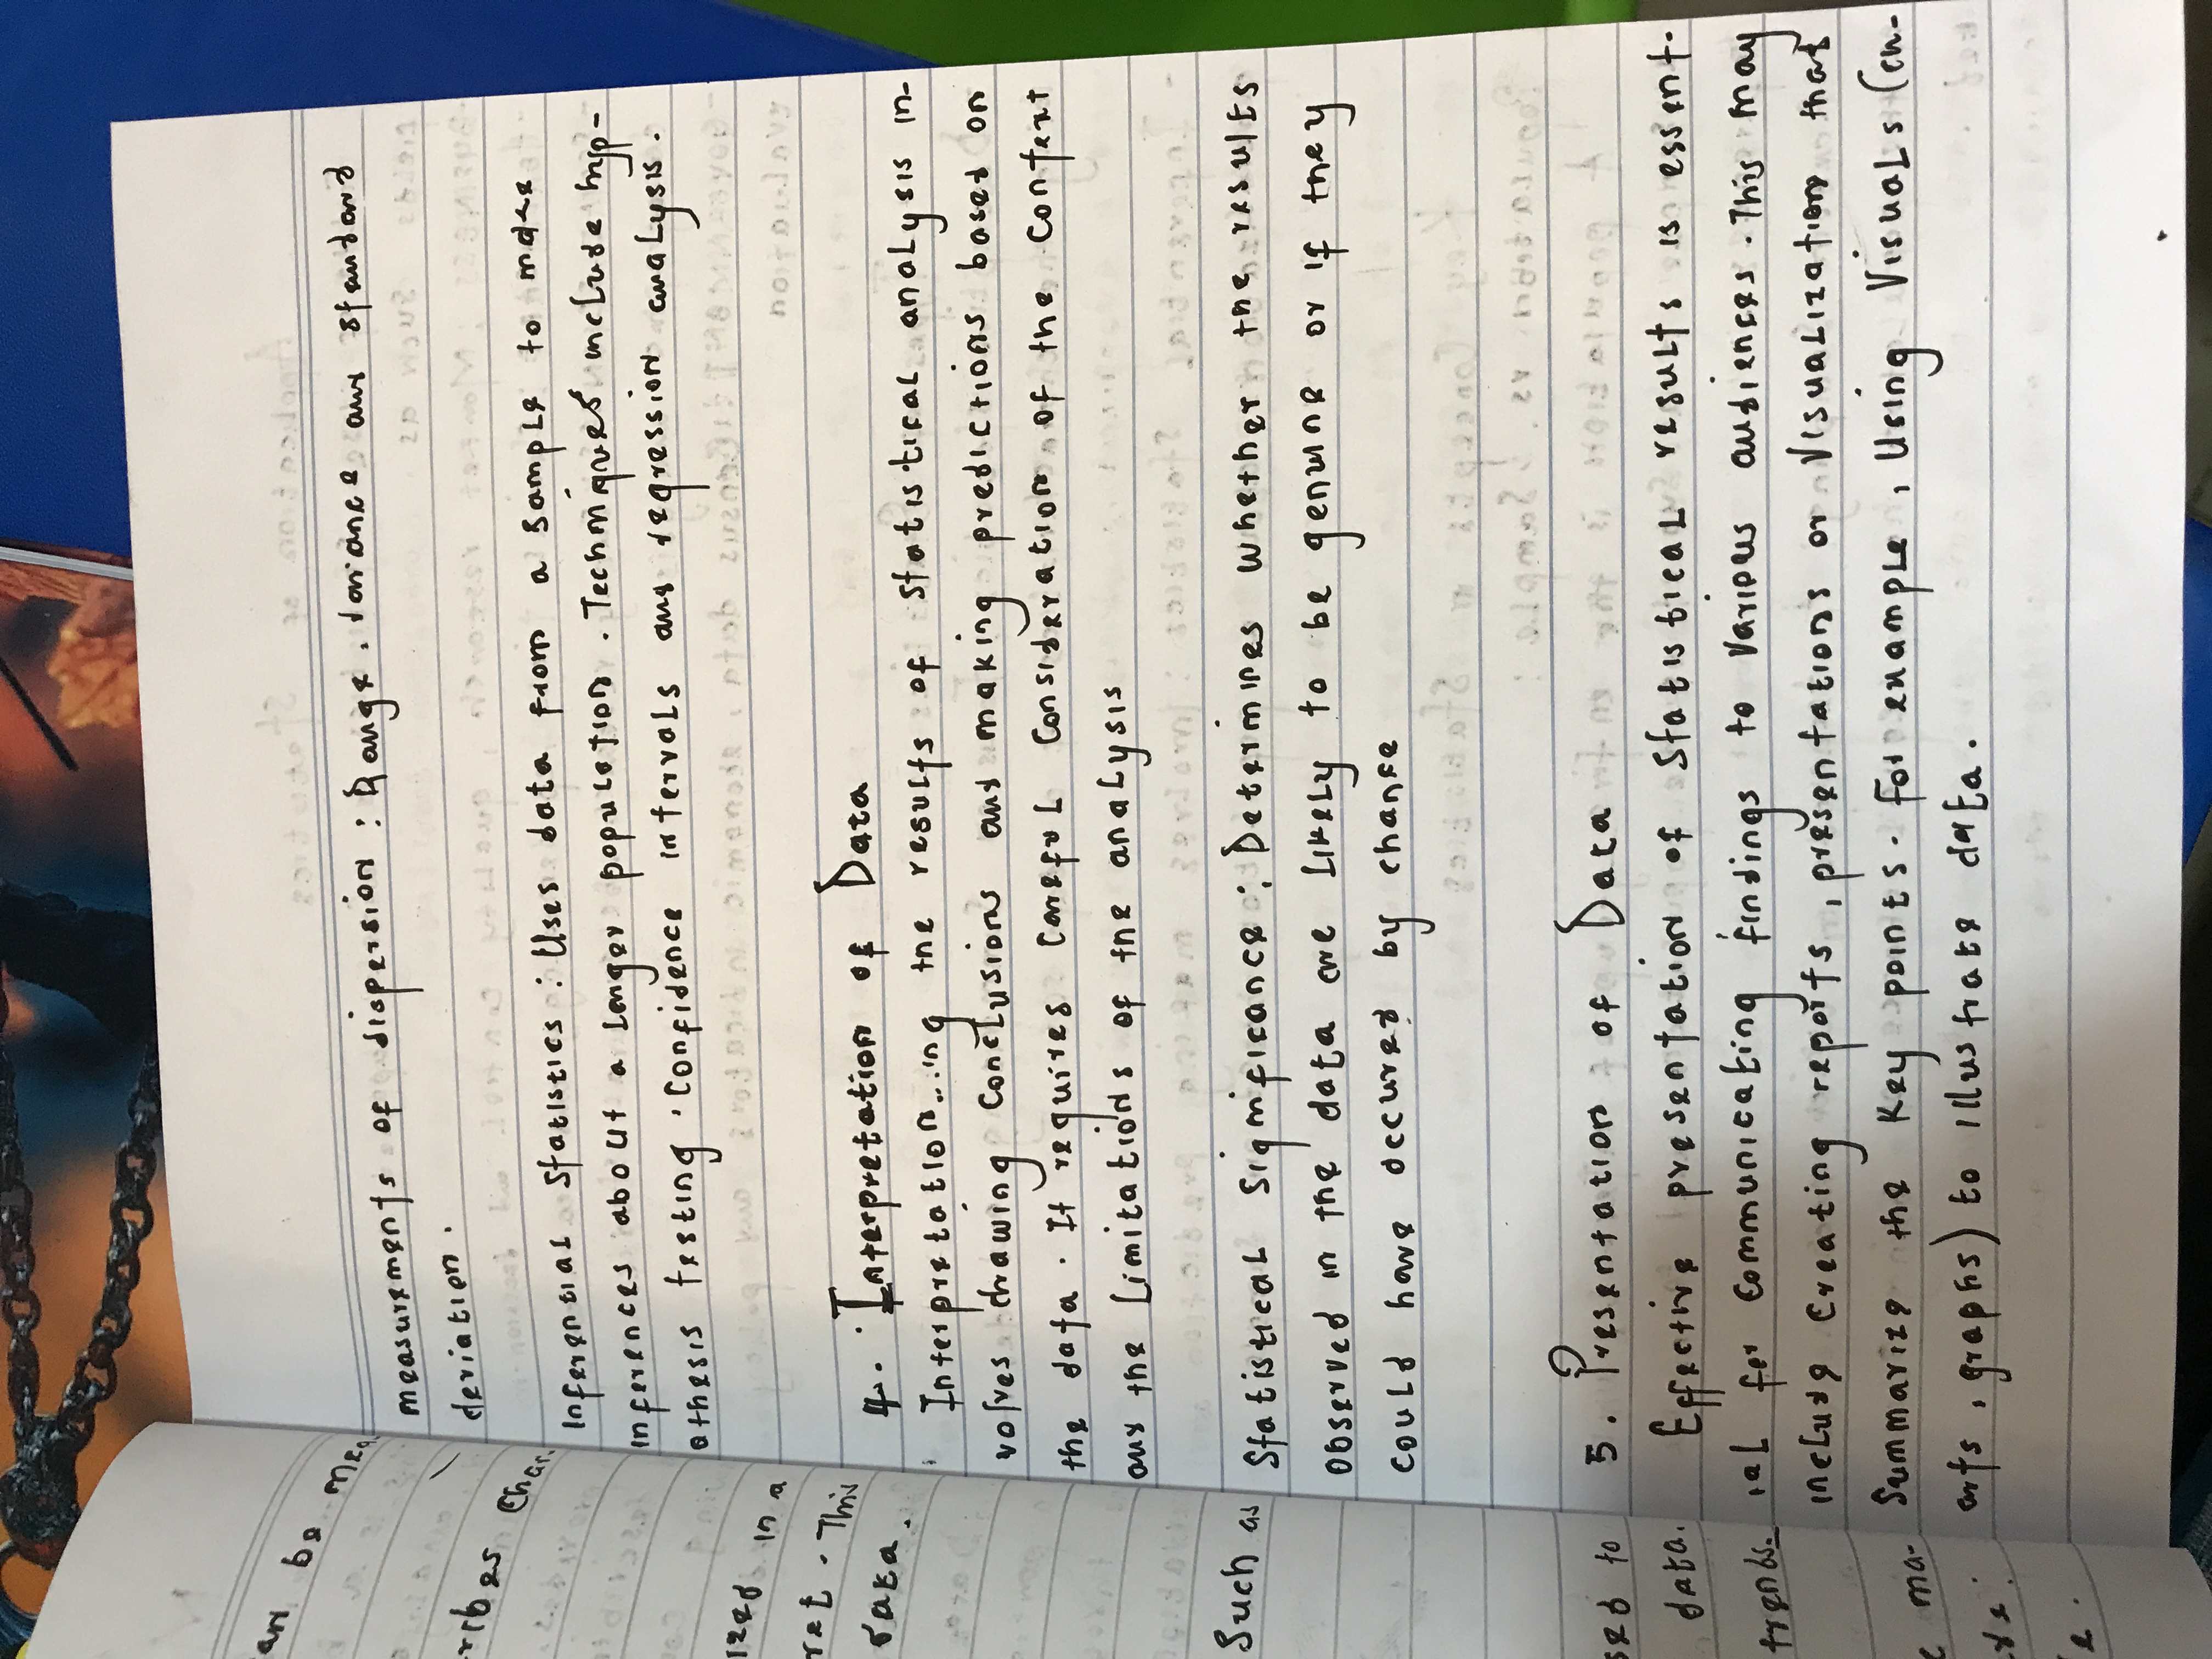 measurements of dispersion : Range, variance and standard
deviation.
Inferential Statistics : Uses data from a sample to make
inferences about a larger population. Techniques include hyp-
othesis testing, Confidence intervals and regression analysis.
4. Interpretation of Data
Interpretation....ing the results of statistical analysis in-
volves drawing conclusions and making predictions based on
the data. It requires careful consideration of the context
and the limitations of the analysis
Statistical Significance: Determines whether the results
observed in the data are likely to be genuine or if they
could have occured by chance
5. Presentation of Data
Effective presentation of statistical results is essent-
ial for communicating findings to various audiences. This may
include creating reports, presentations or visualization that
summarize the key points. For example, using visuals (ch-
arts, graphs) to illustrate data.
an be mea
ribes char
ized in a
ret. This
data.
Such as
sed to
data.
trends.